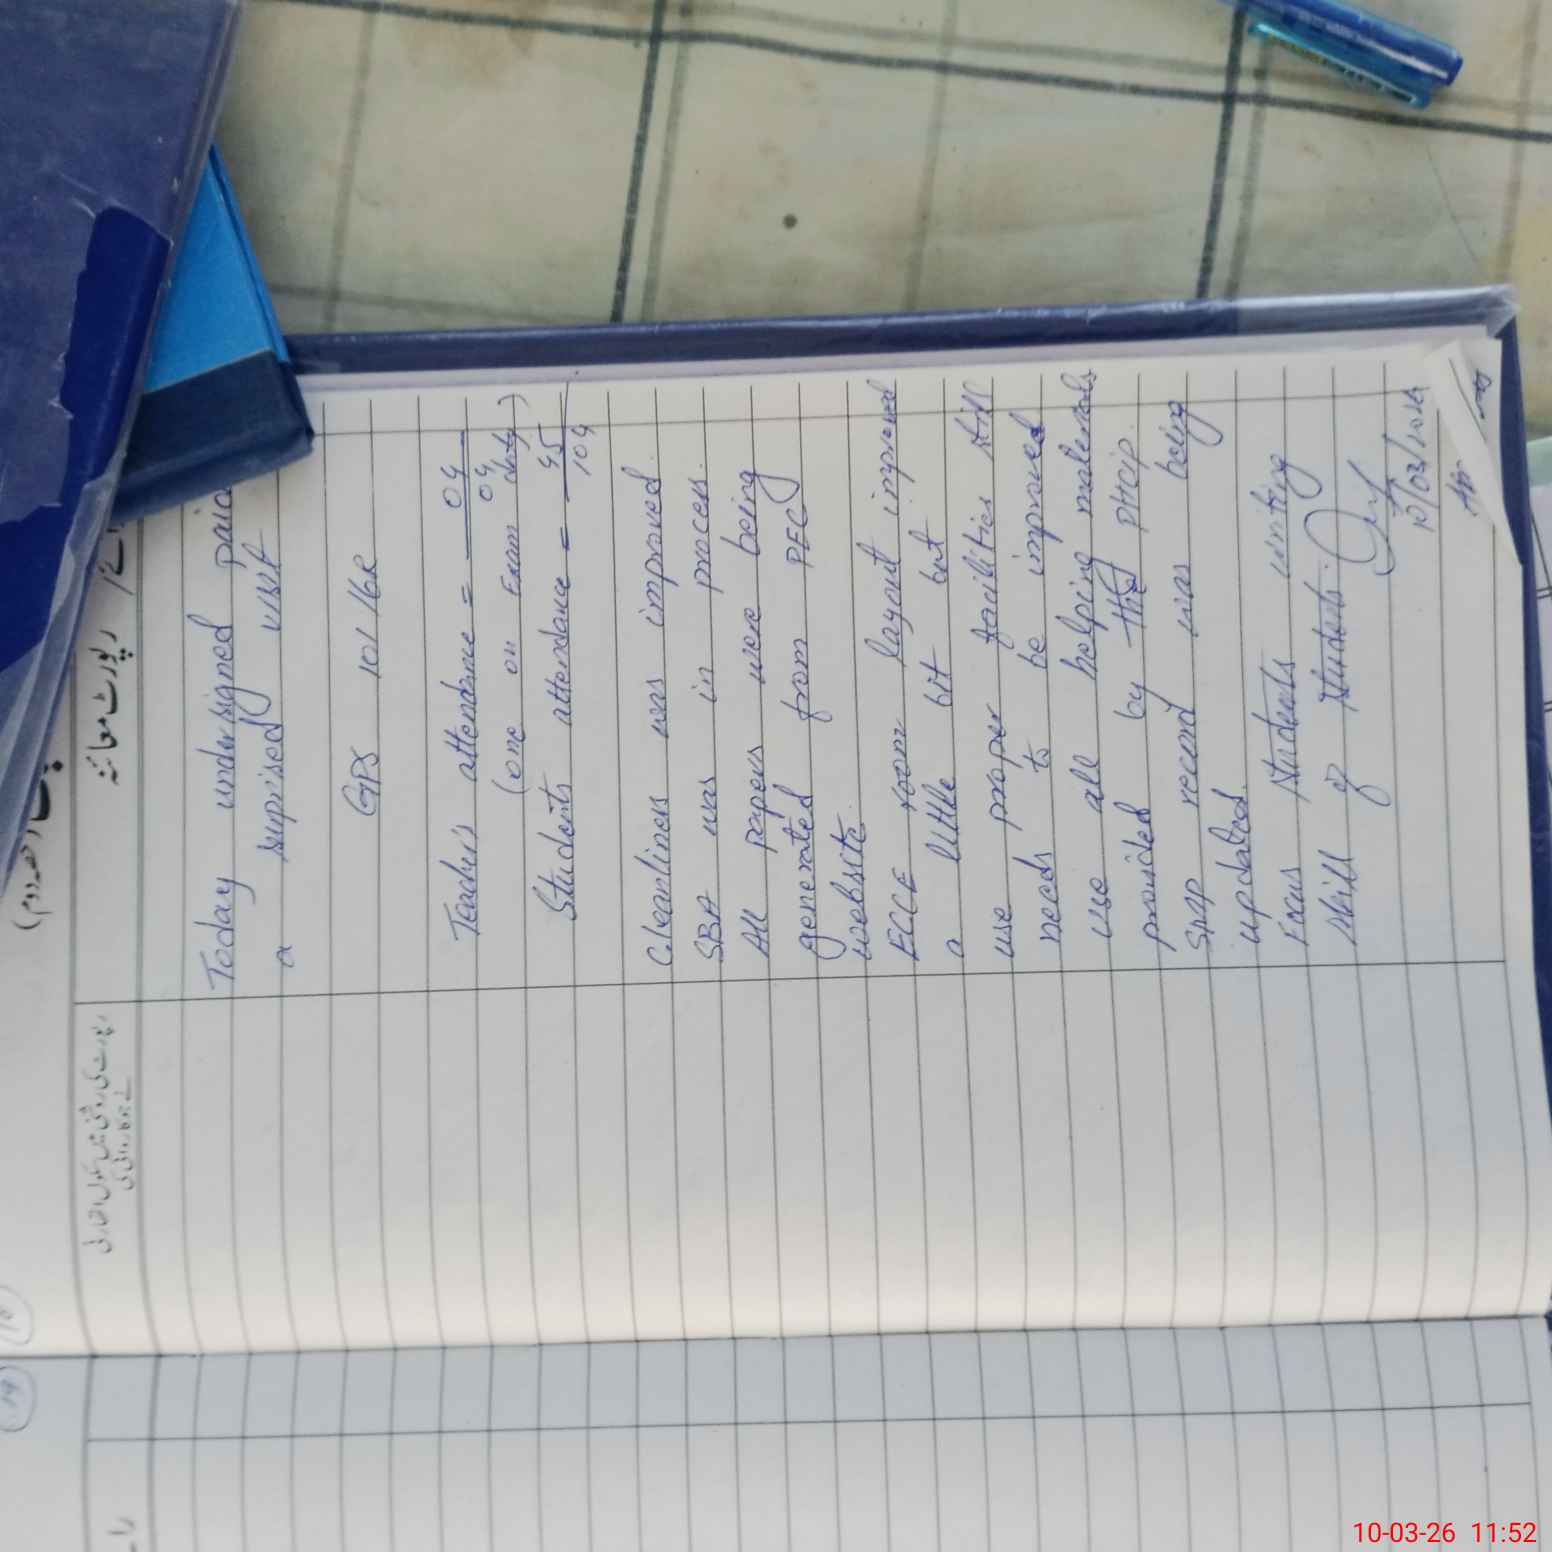 رپورٹ معائنہ
رپورٹ کی روشنی میں سکول اتھارٹی
نے کیا کاروائی کی
Today undersigned paid
a suprised visit
GPS 101/6R
Teacher's attendance = 04
04
(one on Exam duty)
Students attendance = 95
104
Cleanliness was improved.
SBA was in process.
All papers were being
generated from PEC
website.
ECCE room layout improved
a little bit but
use proper facilities still
needs to be improved
use all helping materials
provided by the PHCIP.
SNAP record was being
updated.
Focus students writing
skill of students.
10/03/2026
10-03-26 11:52